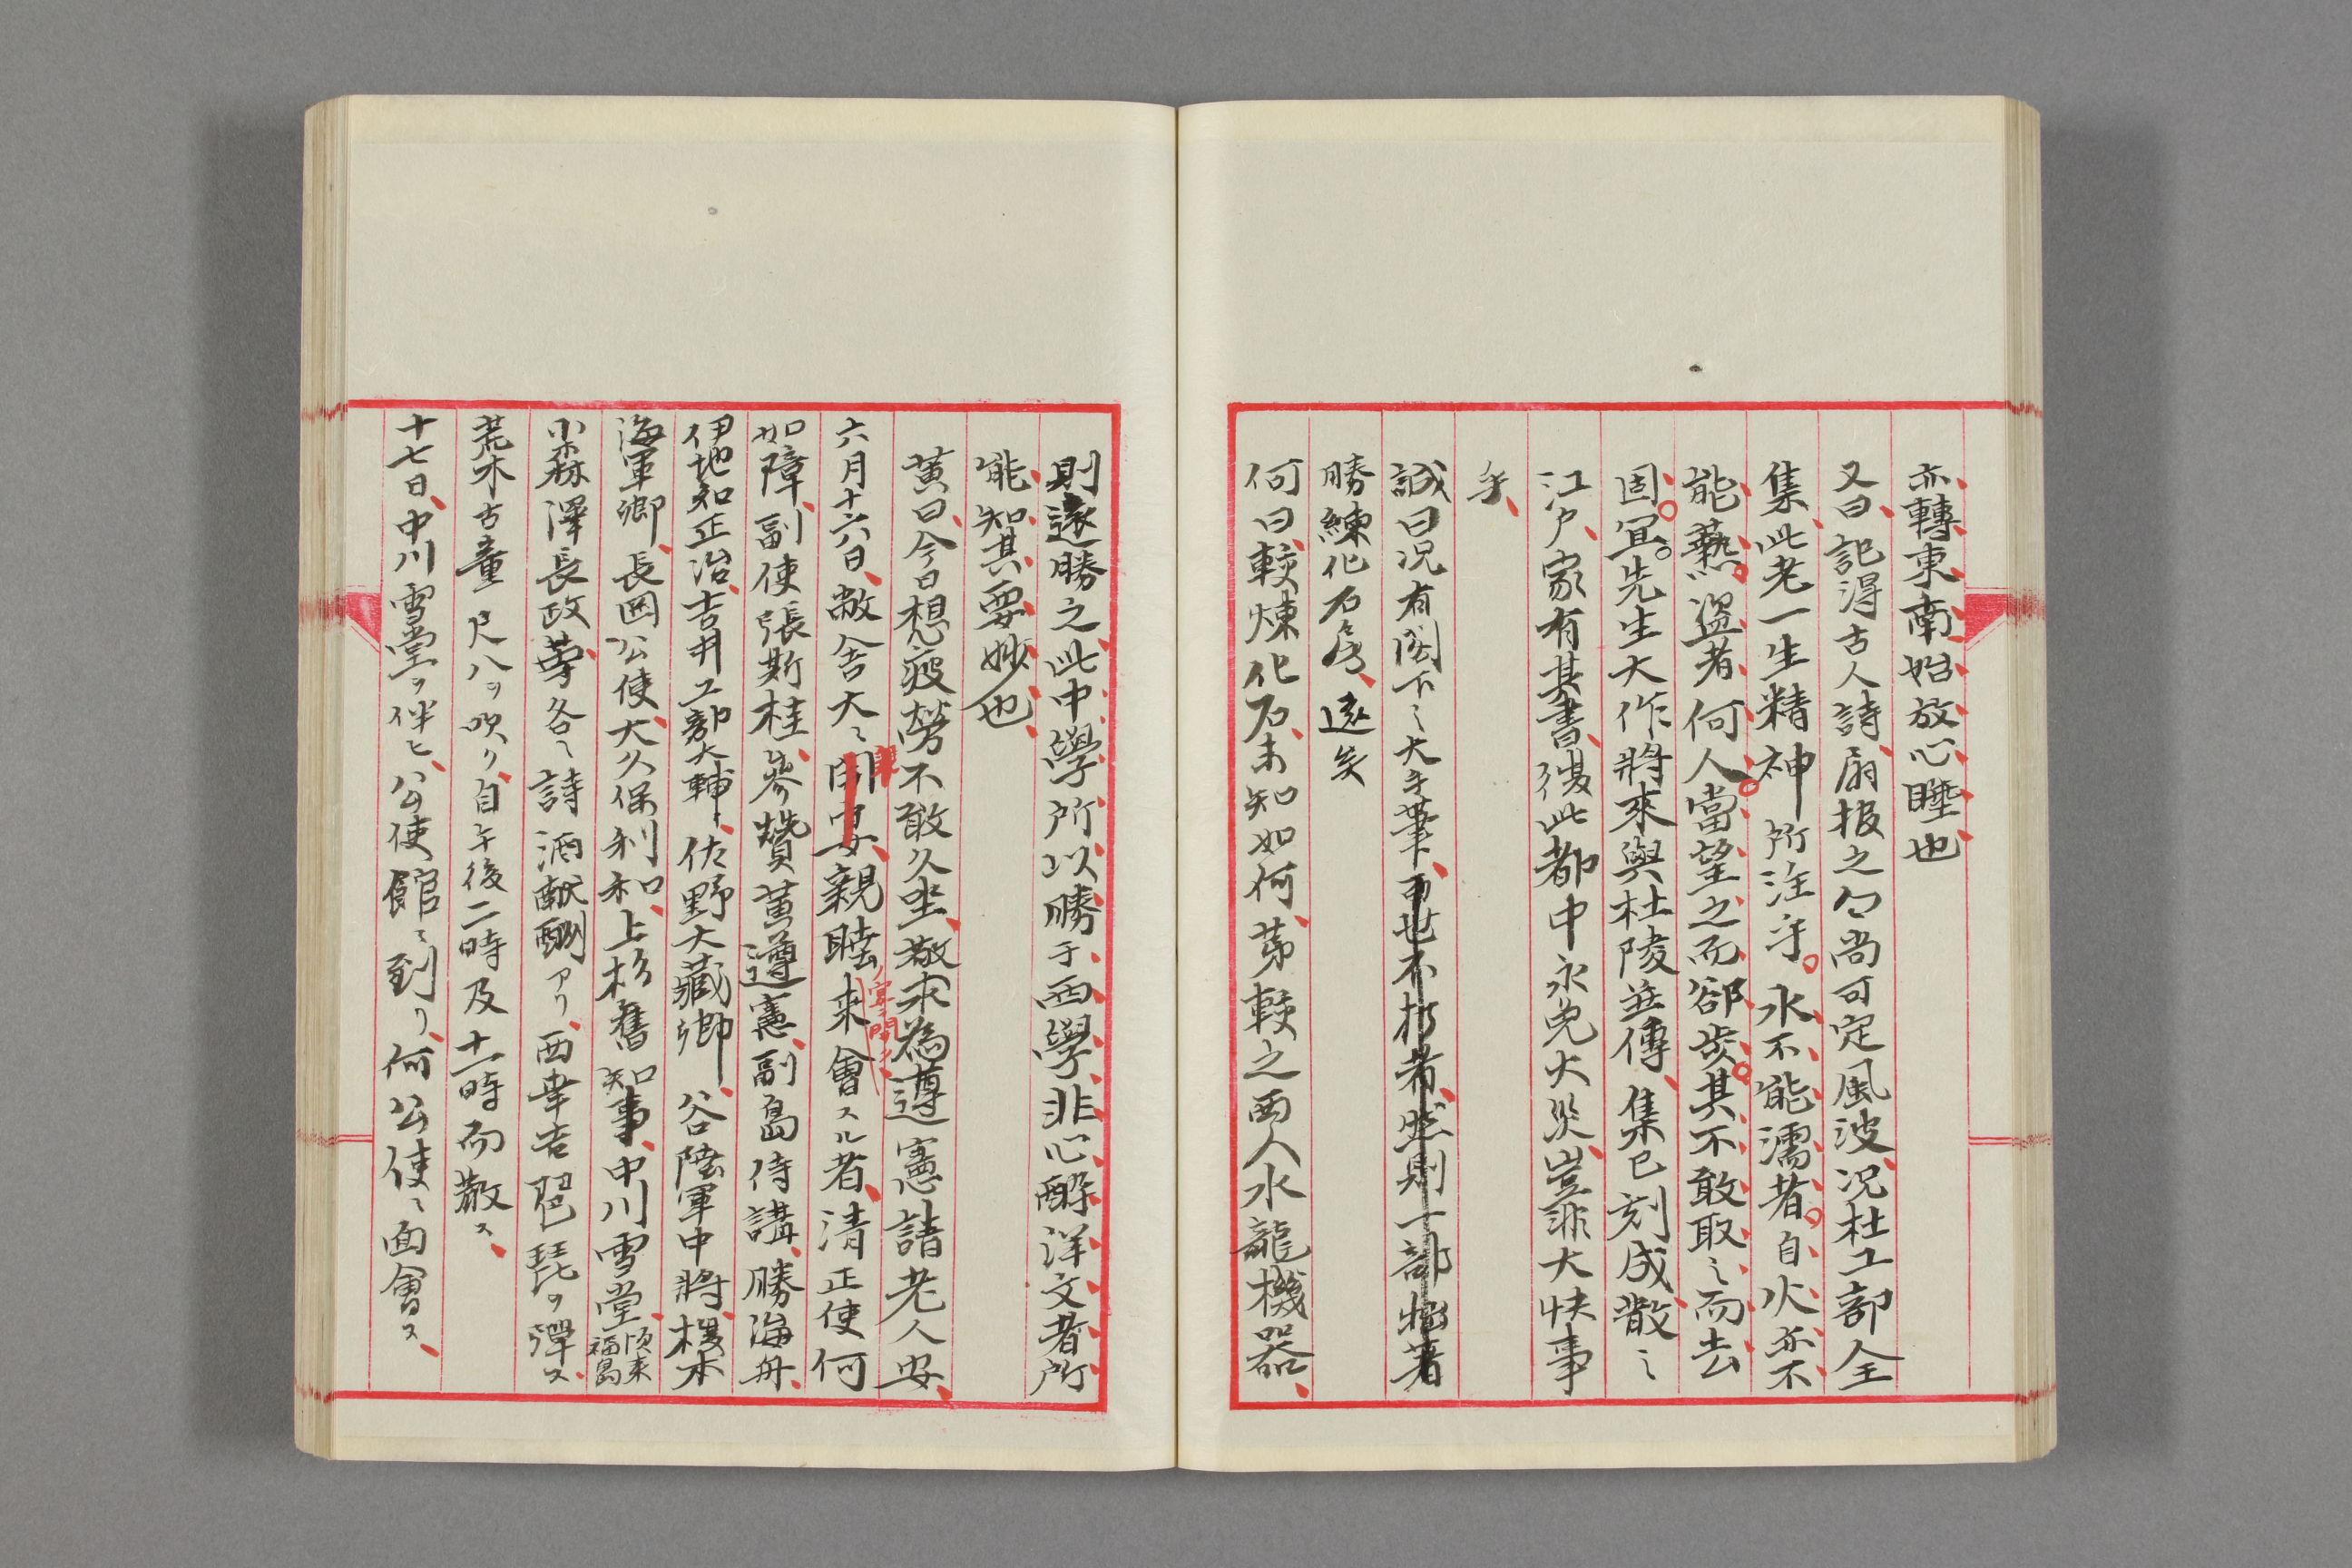 亦轉東南始放心睡也
又曰記得古人詩扇披之句尚可定風波況杜工部全
集此老一生精神所注乎水不能濡者自火亦不
能爇盜者何人當望之而郤步其不敢取之而去
固宜先生大作將來與杜陵並傳集已刻成散之
江戶家有其書後此都中永免火災豈非大快事
乎
誠曰况有閣下之大手筆而世不朽者然則一部拙著
勝練化石居遠矣
何曰較煉化石未知如何第較之西人水龍機器
則遠勝之此中學所以勝于西學非心醉洋文者所
能知其要妙也
黄曰今日想疲勞不敢久坐敬求為遵憲請老人安
六月十六日敝舍大ニ開宴親睦来會スル者清正使何
如障副使張斯桂參贊黃遵憲副島侍講勝海舟
伊地知正治吉井工部大輔佐野大藏卿谷陸軍中將榎本
海軍卿長岡公使大久保利和上杉舊知事中川雪堂頃来福島
小森澤長政等各ニ詩酒献酬アリ西幸吉琵琶ヲ彈ス
荒木古童尺八ヲ吹ク自午後二時及十一時而散ス
十七日中川雪堂ヲ伴ヒ公使館ニ到リ何公使ニ面會ス